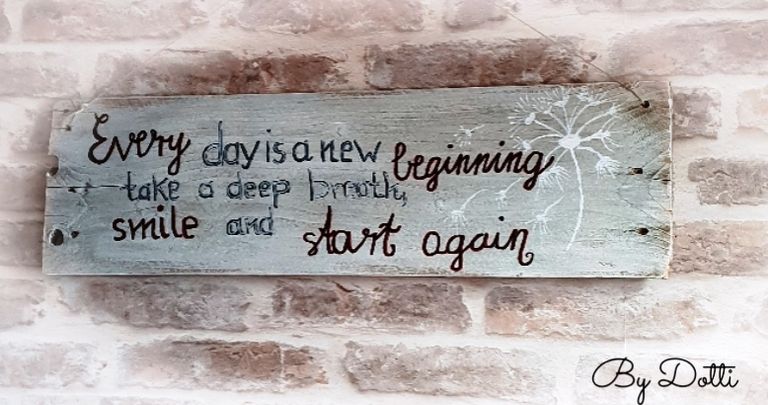 Every day is a new beginning
take a deep breath,
smile and start again
By Dotti